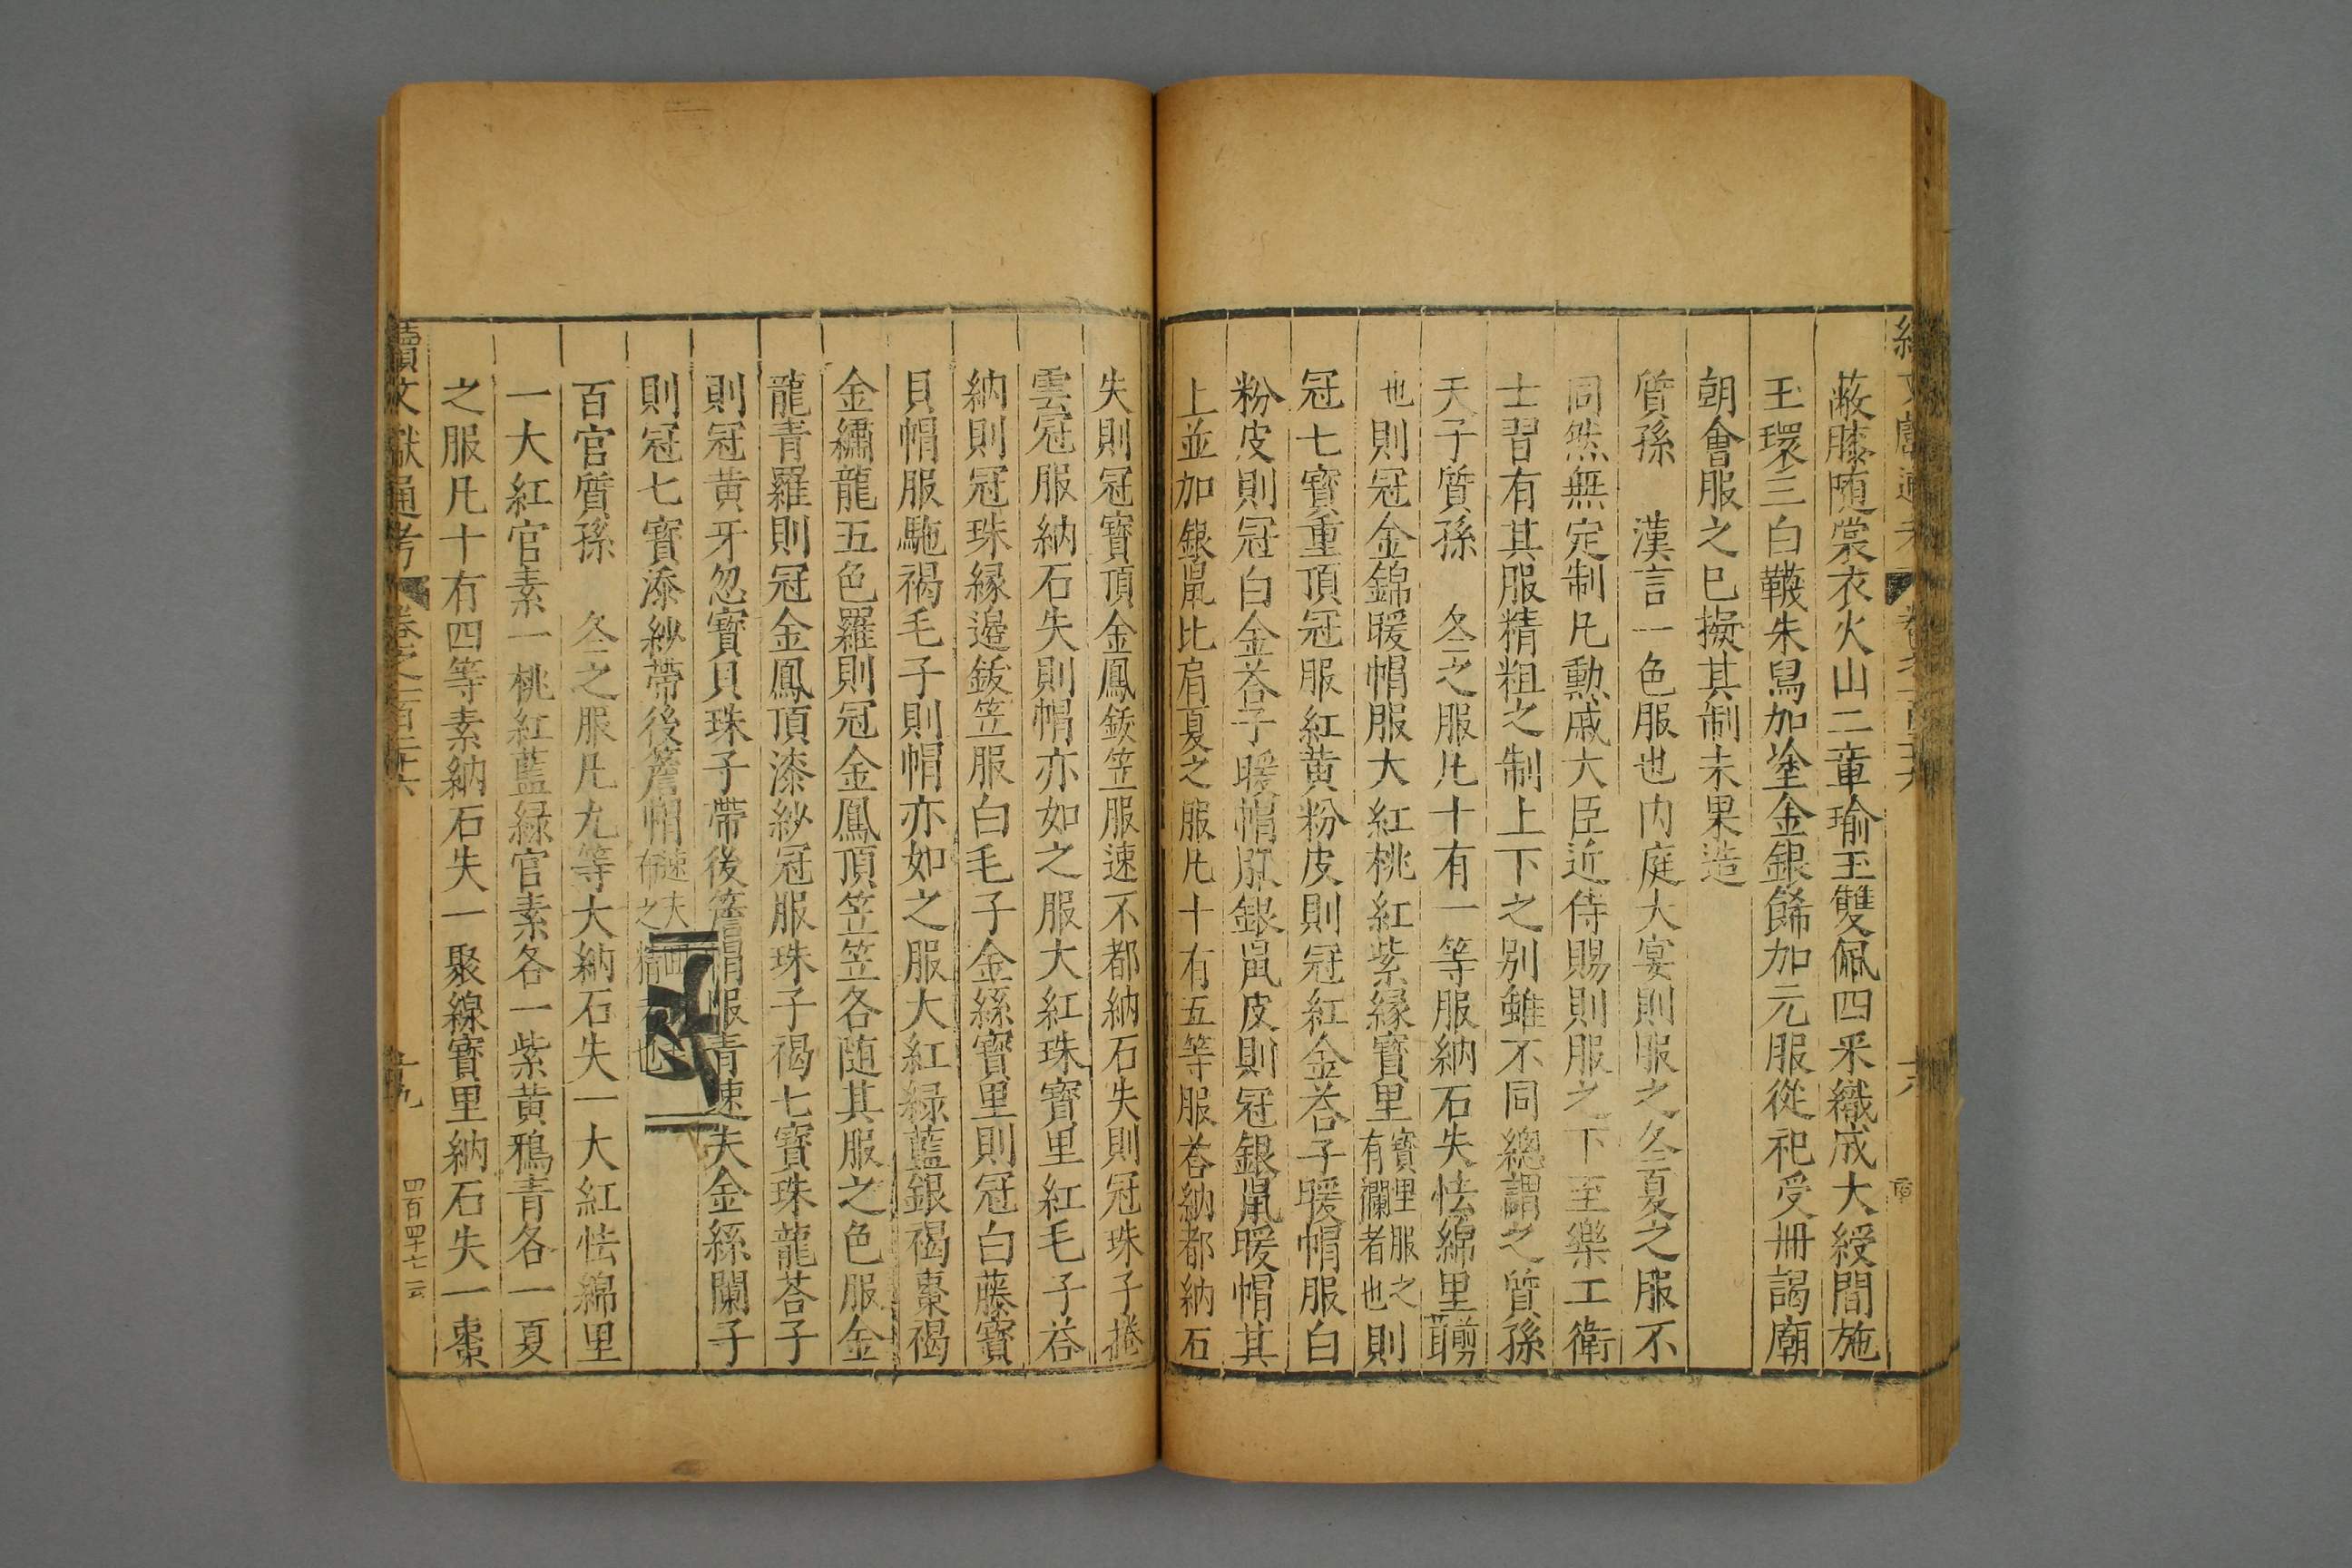 蔽膝随裳衣火山二章瑜玉雙佩四釆織成大綬間施
玉環三白韈朱舄加塗金銀餙加元服從祀受冊謁廟
朝會服之巳擬其制未果造
質孫　漢言一色服也内庭大宴則服之冬夏之服不
同然無定制凡勲戚大臣近侍賜則服之下至樂工衛
士習有其服精粗之制上下之別雖不同總謂之質孫
天子質孫　冬之服凡十有一等服納石失怯綿里剪茸
也則冠金錦暖帽服大紅桃紅紫緑寶里寶里服之有襴者也則
冠七寶重頂冠服紅黄粉皮則冠紅金荅子暖帽服白
粉皮則冠白金荅子暖帽服銀䑕皮則冠銀䑕暖帽其
上並加銀䑕比肩夏之服凡十有五等服荅納都納石
失則冠寶頂金鳳鈸笠服速不都納石失則冠珠子捲
雲冠服納石失則帽亦如之服大紅珠寶里紅毛子荅
納則冠珠縁邉鈸笠服白毛子金絲寶里則冠白藤寶
貝帽服駞褐毛子則帽亦如之服大紅緑藍銀褐棗褐
金繡龍五色羅則冠金鳳頂笠笠各随其服之色服金
龍青羅則冠金鳳頂漆紗冠服珠子褐七寶珠龍荅子
則冠黄牙忽寶貝珠子帶後簷帽服青速夫金絲闌子
則冠七寶漆紗帶後簷帽速夫回布之精者也
百官質孫　冬之服凡九等大納石失一大紅怯綿里
一大紅官素一桃紅藍緑官素各一紫黄鴉青各一夏
之服凡十有四等素納石失一聚線寶里納石失一棗
續文獻通考　卷之一百二十六　十九　四百四十七　云